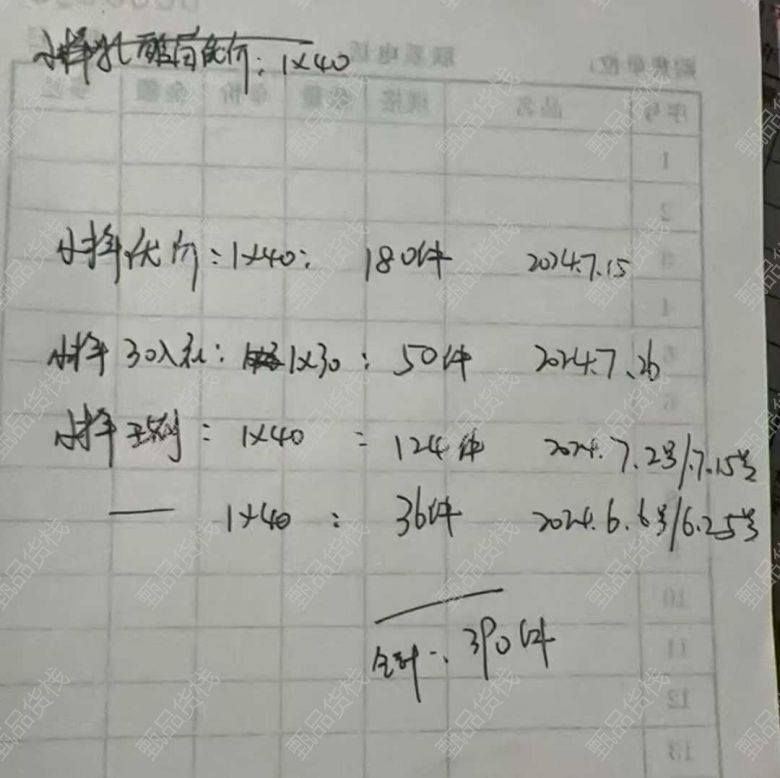 小样乳酸菌优价:1×40
联系电话:
购货单位:
序号 品名 规格 数量 单价 金额
1
2
3
4
小样优价:1×40: 180件 2024.7.15
小样30入礼: 1×30: 50件 2024.7.26
小样: 1×40: 124件 2024.7.2号/7.15号
— 1×40: 36件 2024.6.6号/6.25号
10
11
12
13
合计:390件
甄品货栈